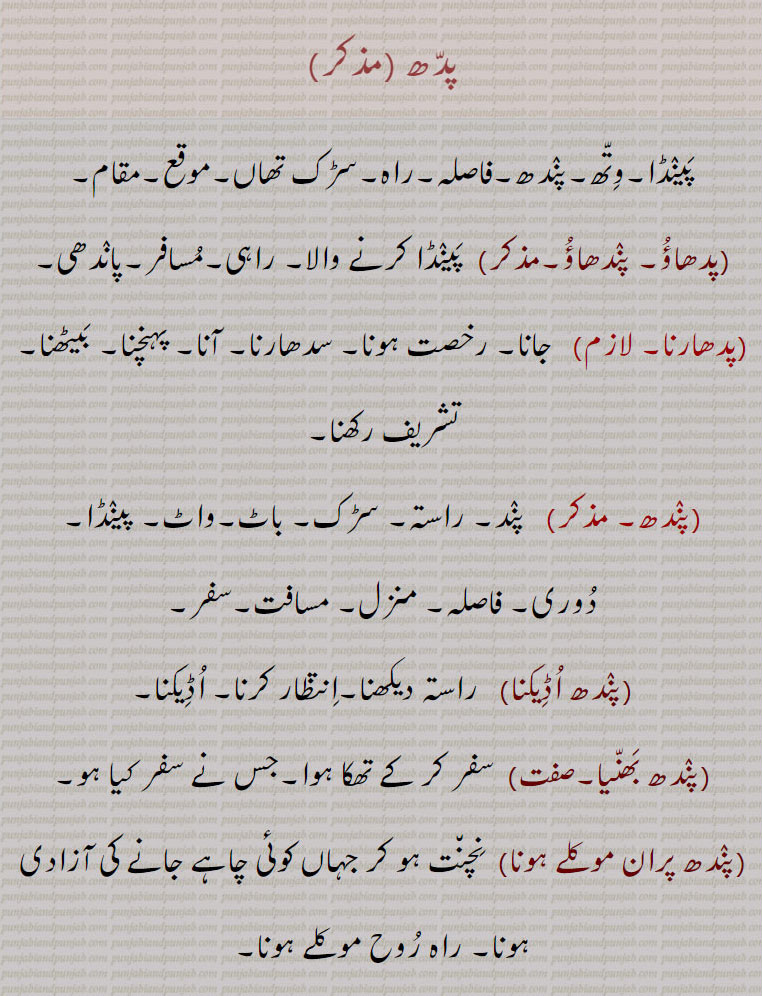 پدّھ (مذکر)
پَینْڈا۔وِتّھ۔پنْدھ۔فاصلہ۔راہ۔سڑک تھاں۔موقع۔مقام۔
(پدھاؤُ۔ پنْدھاؤُ۔مذکر) پَینْڈا کرنے والا۔ راہی۔مُسافر۔پانْدھی۔
(پدھارنا۔ لازم) جانا۔ رخصت ہونا۔ سدھارنا۔ آنا۔ پہنچنا۔ بَیٹھنا۔
تشریف رکھنا۔
(پنْدھ۔ مذکر) پنْد۔ راستہ۔ سڑک۔ باٹ۔واٹ۔ پینْڈا۔
دُوری۔ فاصلہ۔ منزل۔ مسافت۔سفر۔
(پنْدھ اُڈِیکنا) راستہ دیکھنا۔اِنتظار کرنا۔ اُڈِیکنا۔
(پنْدھ بَھنّیا۔صفت) سفر کر کے تھکا ہوا۔جس نے سفر کیا ہو۔
(پنْدھ پران موکلے ہونا) نِچنّت ہو کر جہاں کوئی چاہے جانے کی آزادی
ہونا۔ راہ رُوح موکلے ہونا۔